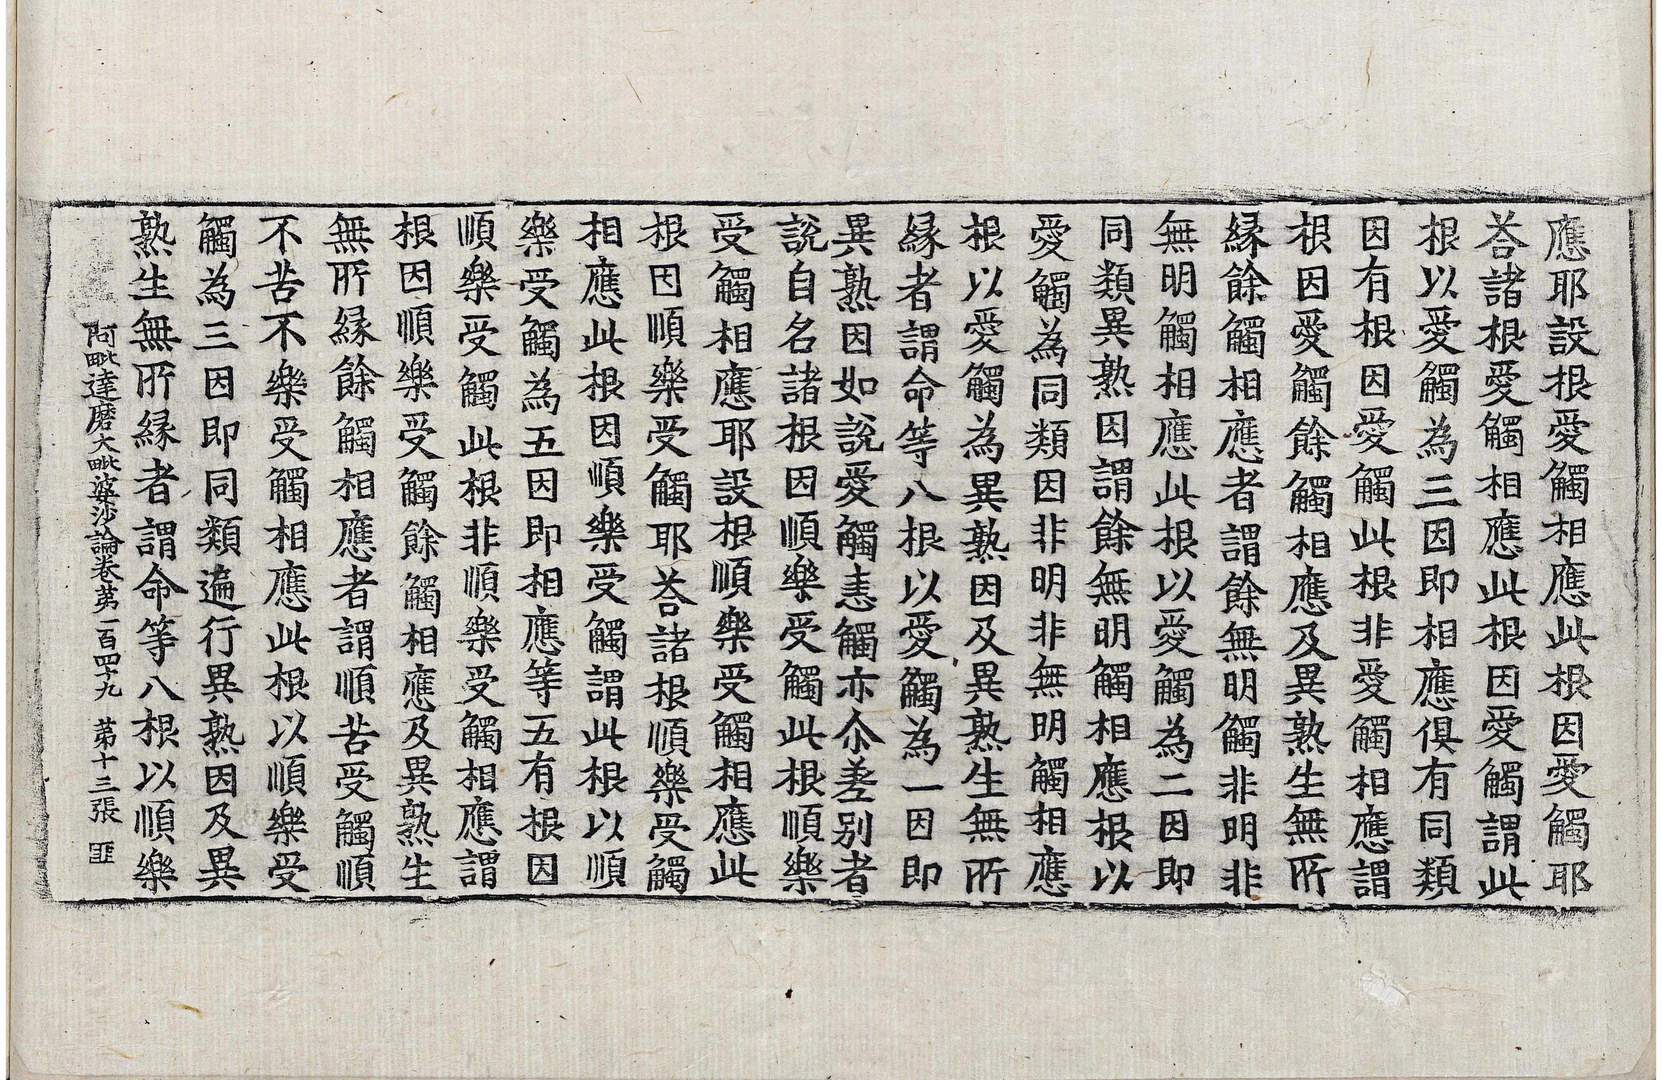 應耶設根愛觸相應此根因愛觸耶
荅諸根愛觸相應此根因愛觸謂此
根以愛觸為三因即相應俱有同類
因有根因愛觸此根非愛觸相應謂
根因愛觸餘觸相應及異熟生無所
縁餘觸相應者謂餘無明觸非明非
無明觸相應此根以愛觸為二因即
同類異熟因謂餘無明觸相應根以
愛觸為同類因非明非無明觸相應
根以愛觸為異熟因及異熟生無所
縁者謂命等八根以愛觸為一因即
異熟因如說愛觸恚觸亦尒差別者
說自名諸根因順樂受觸此根順樂
受觸相應耶設根順樂受觸相應此
根因順樂受觸耶荅諸根順樂受觸
相應此根因順樂受觸謂此根以順
樂受觸為五因即相應等五有根因
順樂受觸此根非順樂受觸相應謂
根因順樂受觸餘觸相應及異熟生
無所縁餘觸相應者謂順苦受觸順
不苦不樂受觸相應此根以順樂受
觸為三因即同類遍行異熟因及異
熟生無所縁者謂命等八根以順樂
阿毗達磨大毗婆沙論卷苐一百四十九 苐十三張 匪